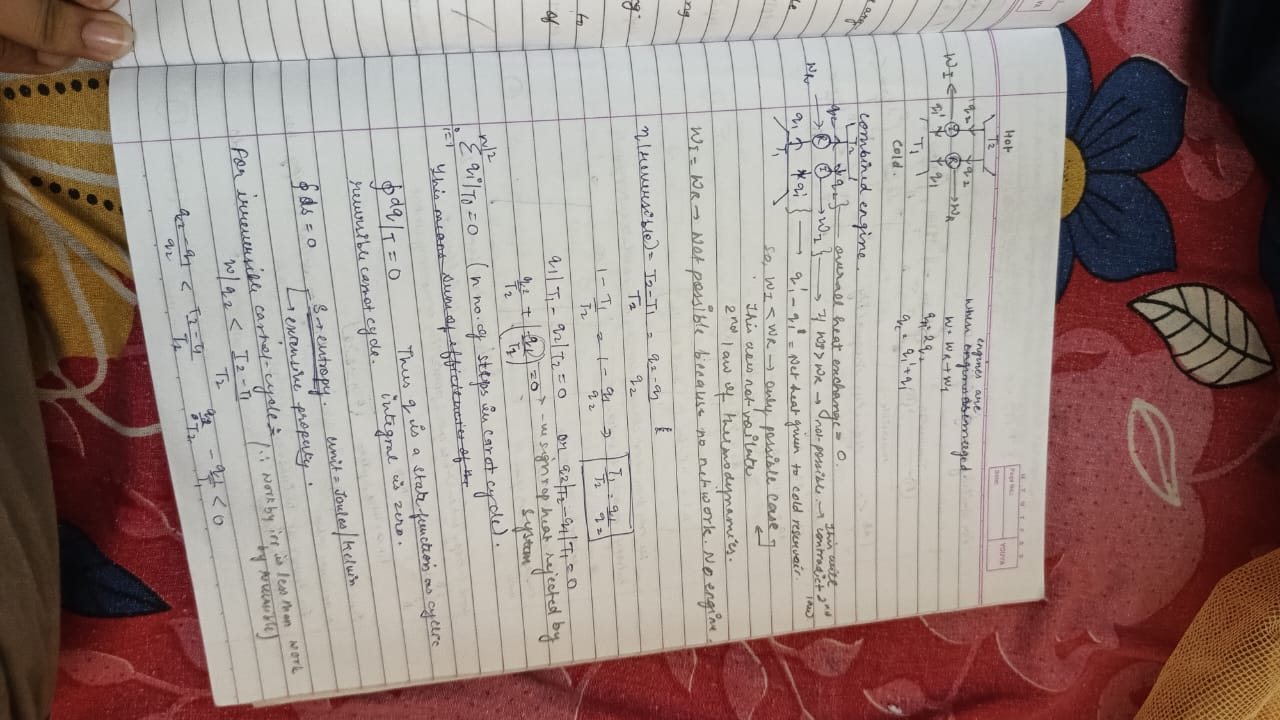 Hot
T2
q2 q2
WI ← I R → WR
q1' q1
T1
cold.
engines are
when merged.
W = WR + WI
q2 = 2q2
qc = q1' + q1
combined engine.
T2
q2 q2 } overall heat exchange = 0.
WR → R I → WI } → if WI > WR → not possible → contradict 2nd law
q1 q1' } → q1' - q1 = net heat given to cold reservoir.
T1
So, WI < WR → only possible case
This does not voilate
2nd law of thermodynamics.
WI = WR → Not possible because no net work. No engine
η(reversible) = T2-T1 / T2 = q2-q1 / q2
1 - T1/T2 = 1 - q1/q2 ⇒ T1/T2 = q1/q2
q1/T1 - q2/T2 = 0 or q2/T2 - q1/T1 = 0
q2/T2 + (q1/T1) = 0 → -ve sign of heat rejected by
system
Σ qi/Ti = 0 (n no. of steps in carnot cycle).
i=1
This means sum of
∮ dq/T = 0 Thus q is a state function as cyclic
reversible carnot cycle. integral is zero.
∮ ds = 0 S → entropy. unit = Joules/Kelvin
→ extensive property
For irreversible carnot cycle = (∵ work by irr is less than work
by reversible)
W/q2 < T2-T1 / T2
q2-q1 / q2 < T2-T1 / T2